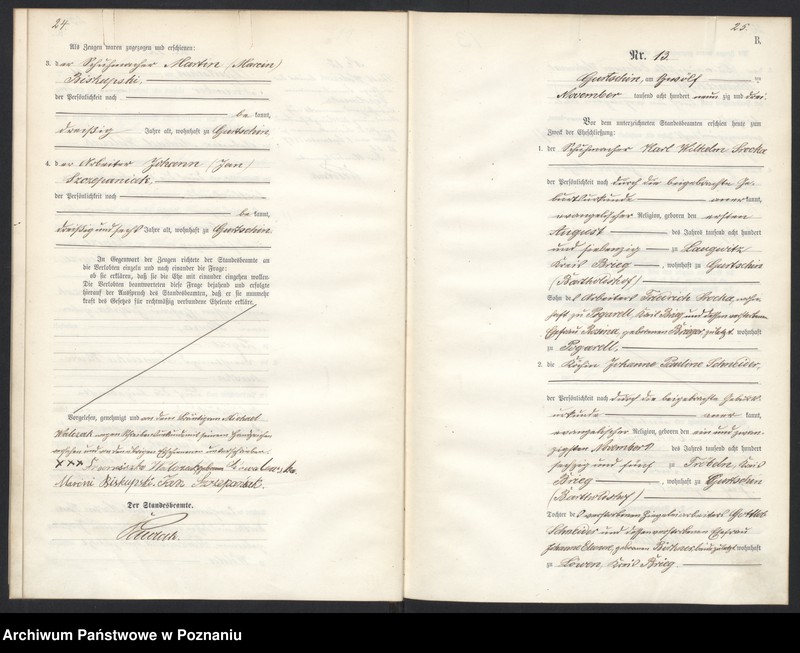 24.
Als Zeugen waren zugezogen und erschienen:
3. der Schuhmacher Martin (Marcin)
Biskupski,
der Persönlichkeit nach
be kannt,
dreißig Jahre alt, wohnhaft zu Gurtschin.
4. der Arbeiter Johann (Jan)
Szczepaniak,
der Persönlichkeit nach
be kannt,
dreißig und sechs Jahre alt, wohnhaft zu Gurtschin.
In Gegenwart der Zeugen richtete der Standesbeamte an
die Verlobten einzeln und nach einander die Frage:
ob sie erklären, daß sie die Ehe mit einander eingehen wollen.
Die Verlobten beantworteten diese Frage bejahend und erfolgte
hierauf der Ausspruch des Standesbeamten, daß er sie nunmehr
kraft des Gesetzes für rechtmäßig verbundene Eheleute erkläre.
Vorgelesen, genehmigt und von dem Bräutigam Michael
Walczak wegen Schreibensunkunde mit seinem Handzeichen
versehen und von den übrigen Erschienenen unterschrieben.
XXX Franciszka Walczak geborene
Marcin Biskupski. Jan Szczepaniak.
Der Standesbeamte.
25.
B.
Nr. 13.
Gurtschin, am zwölf ten
November tausend acht hundert neun zig und drei.
Vor dem unterzeichneten Standesbeamten erschien heute zum
Zweck der Eheschließung:
1. der Schuhmacher Karl Wilhelm
der Persönlichkeit nach durch die beigebrachte Ge-
burtsurkunde aner kannt,
evangelischer Religion, geboren den ersten
August des Jahres tausend acht hundert
und siebenzig zu Laugwitz
Kreis Brieg, wohnhaft zu Gurtschin
(Bartholdshof)
Sohn des Arbeiters Friedrich wohn-
haft zu Pogarell, Kreis Brieg und dessen verstorbenen
Ehefrau Rosina, geborenen zuletzt wohnhaft
zu Pogarell.
2. die Köchin Johanne Pauline Schneider,
der Persönlichkeit nach durch die beigebrachte Geburts-
urkunde aner kannt,
evangelischer Religion, geboren den ein und zwan-
zigsten November des Jahres tausend acht hundert
sechzig und fünf zu Kreis
Brieg, wohnhaft zu Gurtschin
(Bartholdshof)
Tochter des verstorbenen Ziegeleiarbeiters Gottlieb
Schneider und dessen verstorbenen Ehefrau
Johanne geborenen beide zuletzt wohnhaft
zu Löwen, Kreis Brieg.
Archiwum Państwowe w Poznaniu